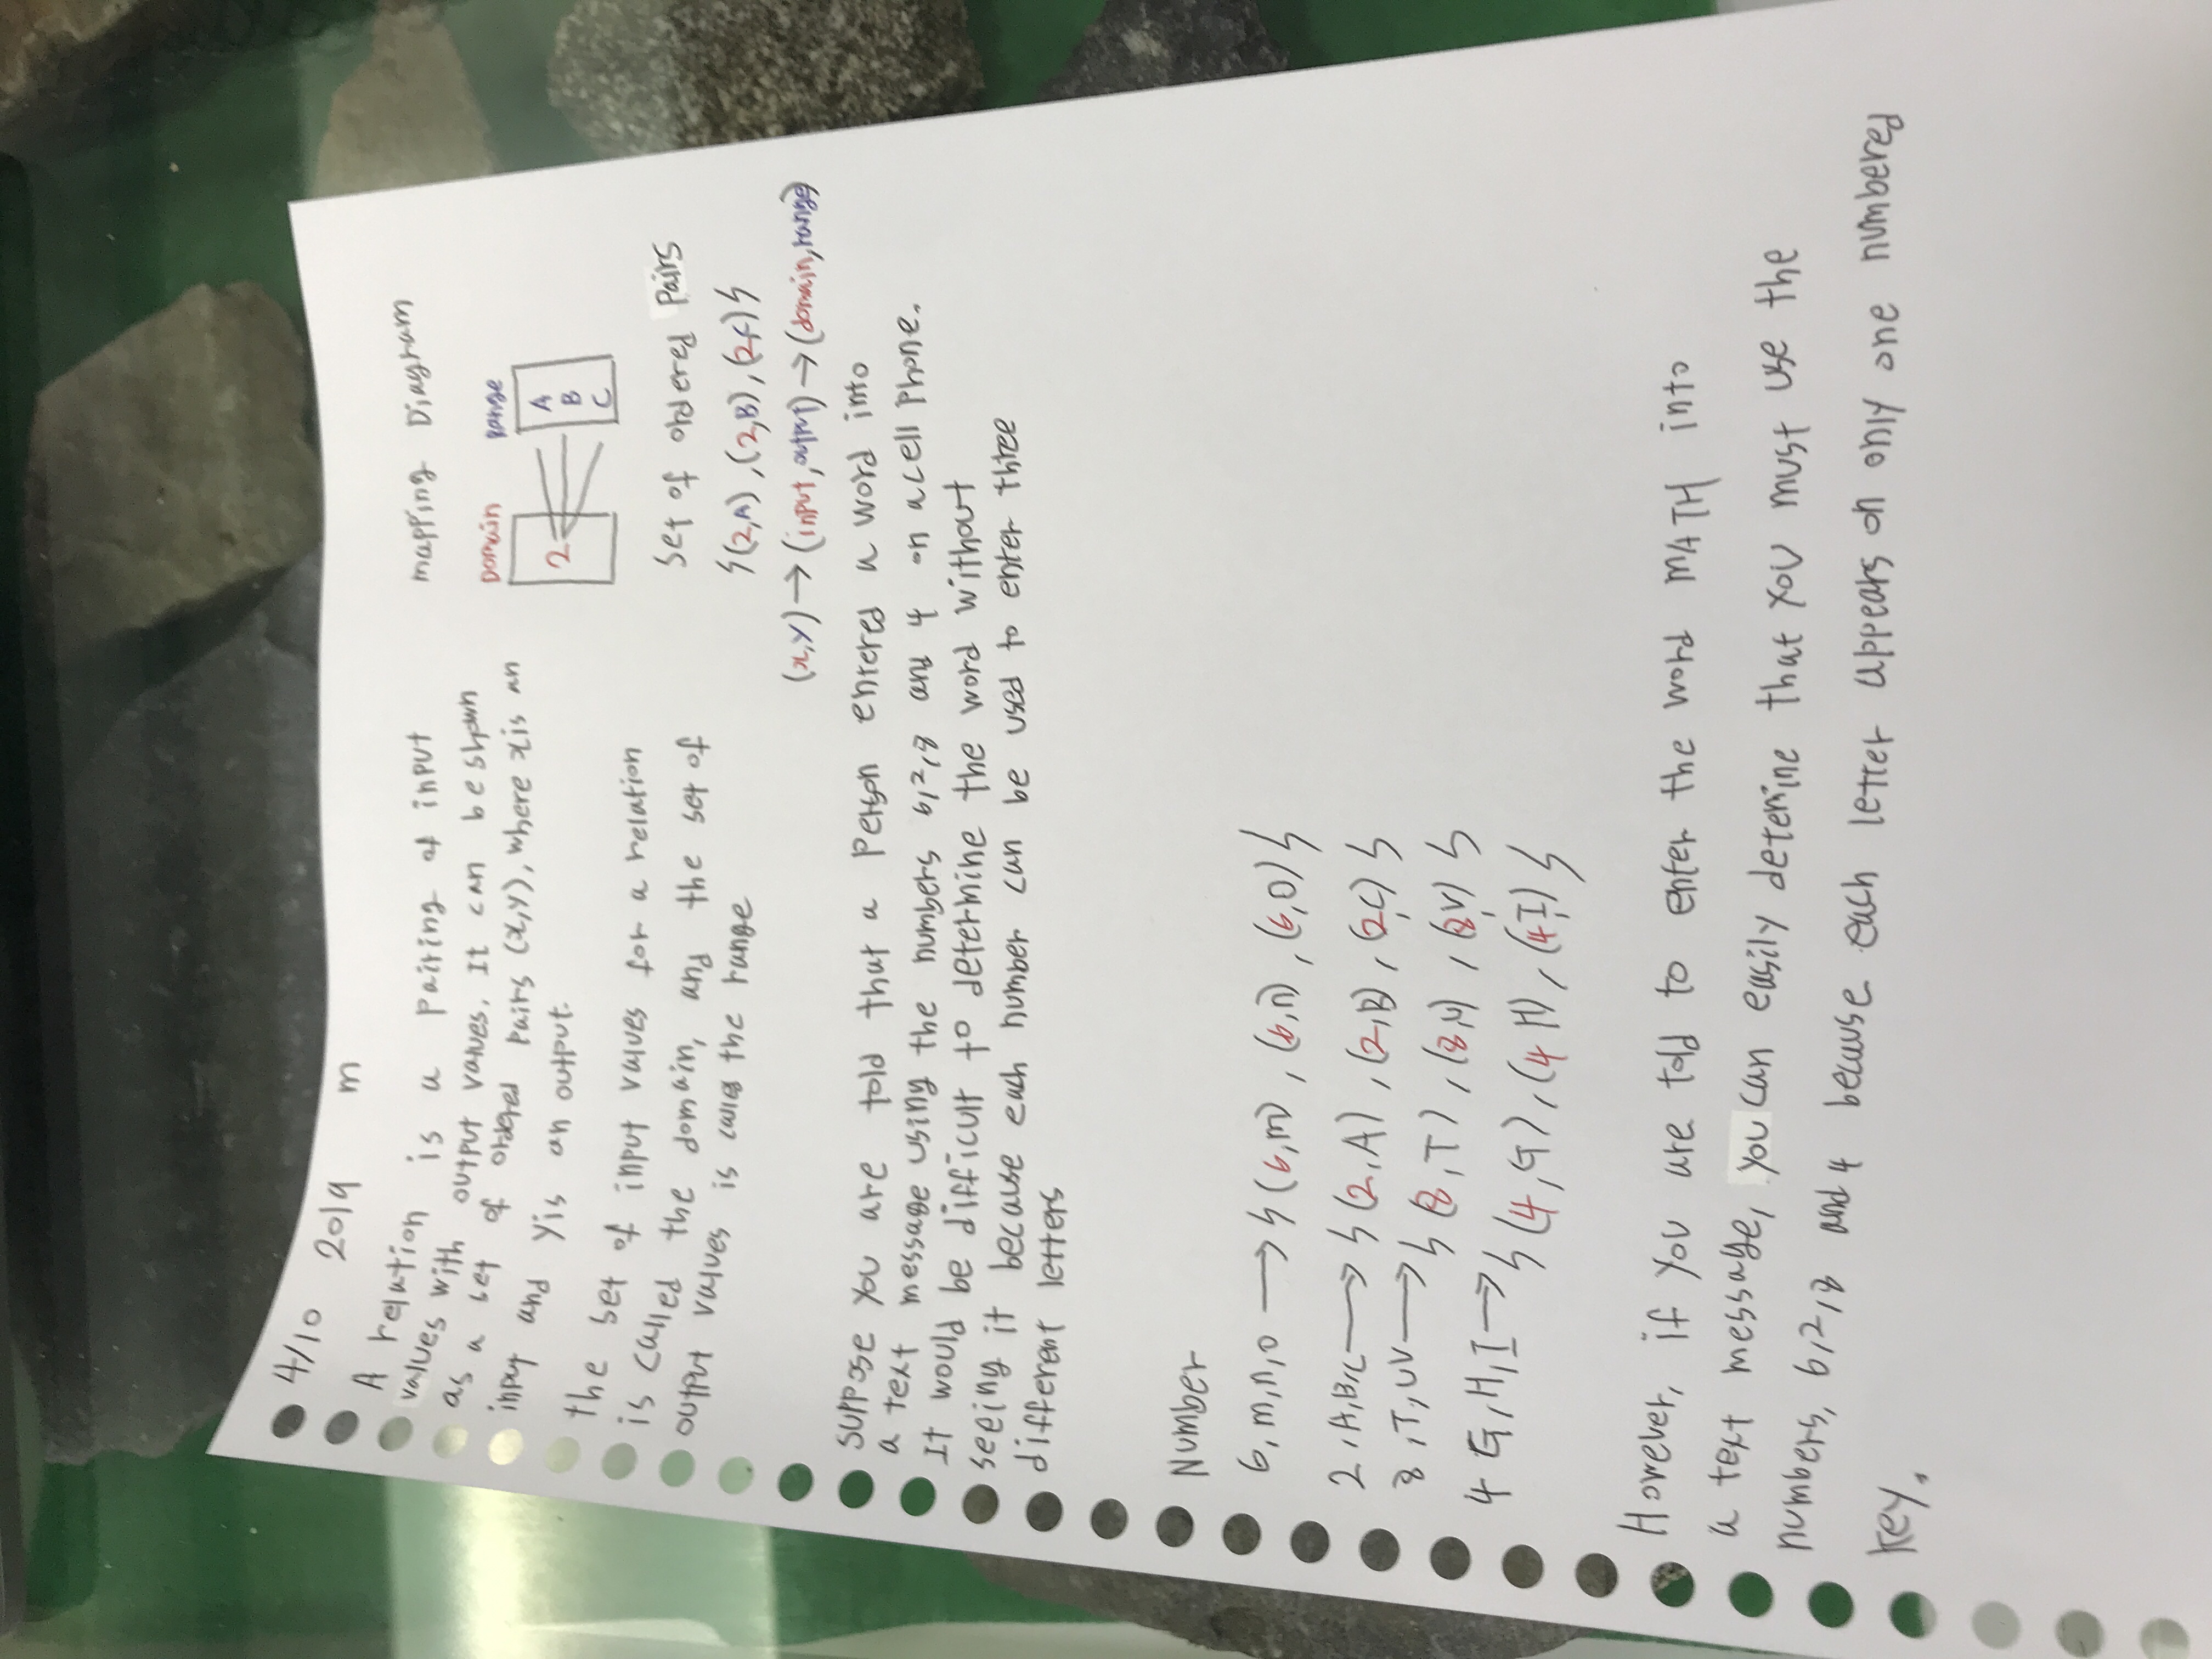 4/10 2019 m
A relation is a pairing of input
values with output values, It can be shown
as a set of ordered pairs (x,y), where x is an
input and y is an output.
the set of input values for a relation
is called the domain, and the set of
output values is called the range
mapping Diagram
Domain range
2 A
B
C
Set of ordered Pairs
{(2,A),(2,B),(2,C)}
(x,y)→(input,output)→(domain,range)
suppose you are told that a Person entered a word into
a text message using the numbers 6,2,8 and 4 on a cell phone.
It would be difficult to determine the word without
seeing it because each number can be used to enter three
different letters
Number
6,m,n,o→{(6,m),(6,n),(6,O)}
2,A,B,C→{(2,A),(2,B),(2,C)}
8,T,UV→{(8,T),(8,U),(8,V)}
4 G,H,I→{(4,G),(4 H),(4,I)}
However, if you are told to enter the word mATH into
a text message, you can easily detemine that you must use the
numbers, 6,2,8 and 4 because each letter appears on only one numbered
key.